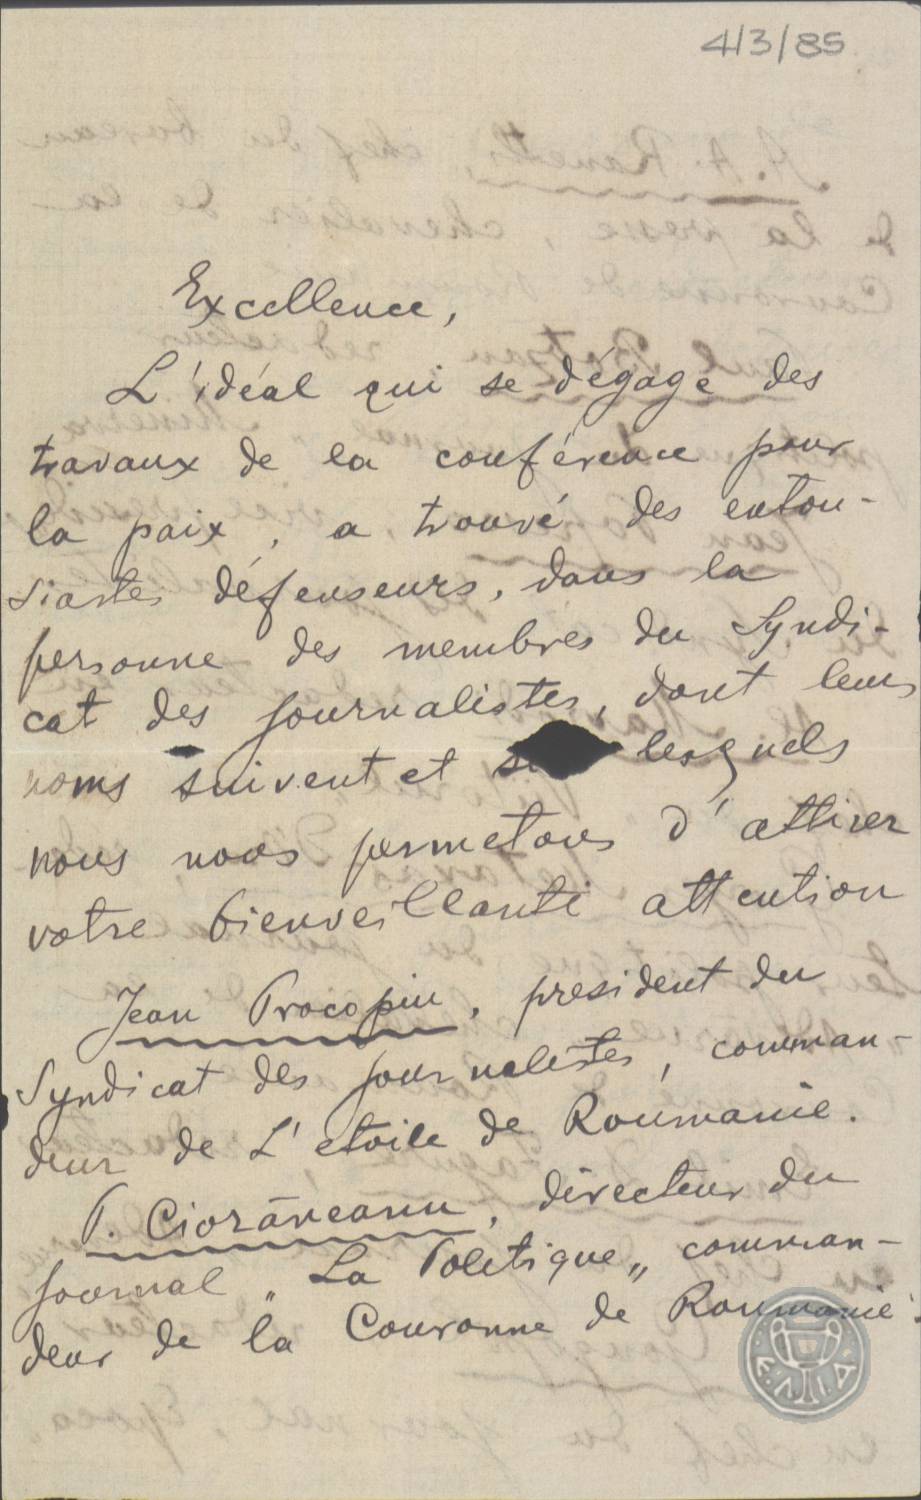 4/3/85
Excellence,
L'idéal qui se dégage des
travaux de la conférence pour
la paix, a trouvé des entou-
siastes défenseurs, dans la
personne des membres du Syndi-
cat des journalistes, dont leurs
noms suivent et lesquels
nous nous permetons d'attirer
votre bienveillante attention
Jean Procopiu, president du
Syndicat des journalistes, comman-
deur de L'etoile de Roumanie.
P. Ciorăneanu, directeur du
journal „La Politique„ comman-
deur de la Couronne de Roumanie.
Ε.Λ.Ι.Α